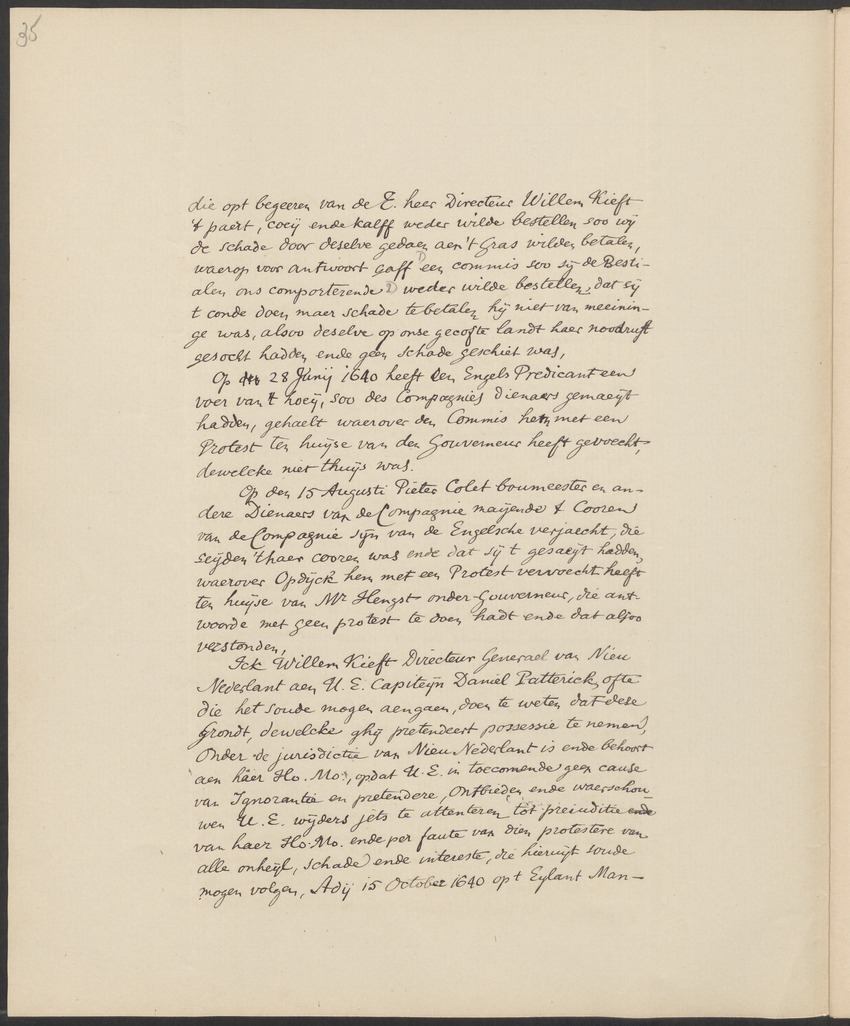 35
die opt begeeren van de E. heer Directeur Willem Kieft
't paert, coeij ende kalff weder wilde bestellen soo wij
de schade door deselve gedaen aen 't Gras wilden betalen,
waerop voor antwoort gaff een commis soo sij de Besti-
alen ons comporterende weder wilde bestellen, dat sij
t conde doen maer schade te betalen hij niet van meeinin-
ge was, alsoo deselve op onse gecofte landt haer noodruft
gesocht hadden ende geen schade geschiet was,
Op den 28 Junij 1640 heeft den Engels Predicant een
voer van 't hoeij, soo des Compagnies dienaers gemaeijt
hadden, gehaelt waerover den Commis hem met een
Protest ten huijse van den Gouverneur heeft gevoecht,
dewelcke niet thuijs was.
Op den 15 Augusti Pieter Colet boumeester en an-
dere Dienaers van de Compagnie maijende t Cooren
van de Compagnie sijn van de Engelsche verjaecht, die
seijden 't haer cooren was ende dat sij t gesaeijt hadden,
waerover Opdijck hem met een Protest vervoecht heeft
ten huijse van Mr Hengst onder-Gouverneur, die ant-
woorde met geen protest te doen hadt ende dat alsoo
verstonden,
Ick Willem Kieft Directeur Generael van Nieu
Nederlant aen U. E. Capiteijn Daniel Patterick, ofte
die het soude mogen aengaen, doen te weten dat dese
grondt, dewelcke ghij pretendeert possessie te nemen,
Onder de jurisdictie van Nieu Nederlant is ende behoort
aen haer Ho. Mo., opdat U. E. in toecomende geen cause
van Ignorantie en pretendere, Ontbieden ende waerschou
wen U. E. wijders jets te attenteren tot prejuditie ende
van haer Ho: Mo. ende per faute van dien protestere van
alle onheijl, schade ende intereste, die hieruijt soude
mogen volgen, Adij 15 October 1640 op t Eylant Man-